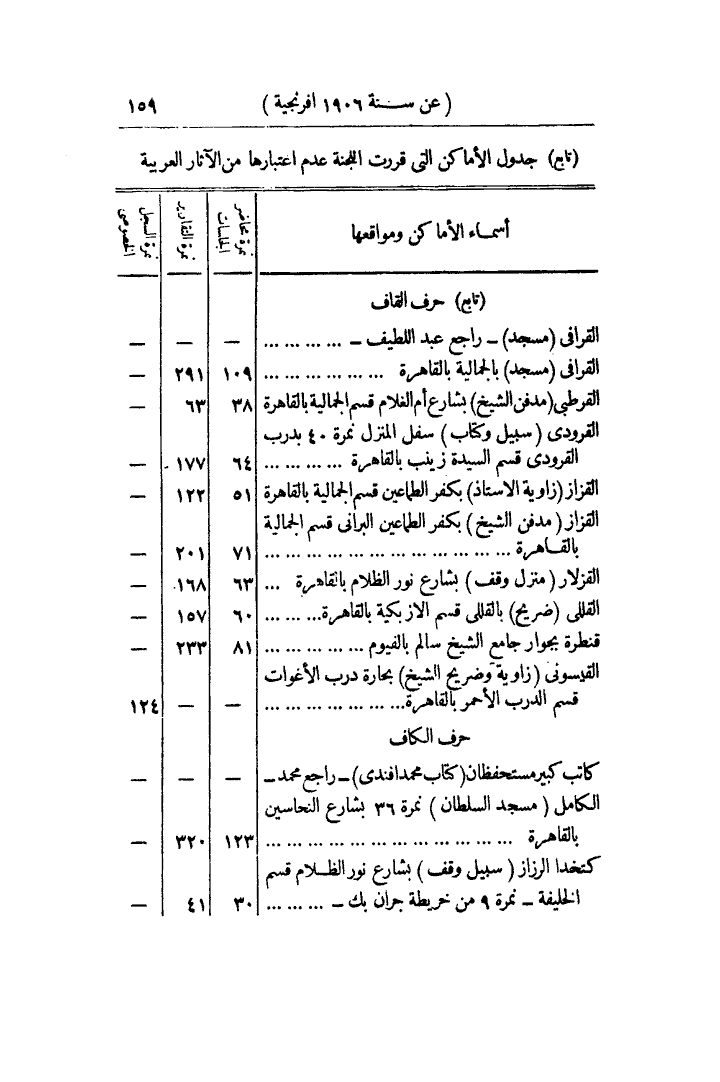 ( عن سنة ١٩٠٦ افرنجية ) ١٥٩
(تابع) جدول الأماكن التى قررت اللجنة عدم اعتبارها من الآثار العربية
أسماء الأماكن ومواقعها | نمرة محاضر الجلسات | نمرة التقارير | نمرة السجل الخصوصى
(تابع) حرف القاف
القرافى (مسجد) ــ راجع عبد اللطيف ــ ... ... ... ... — — —
القرافى (مسجد) بالجمالية بالقاهرة ... ... ... ... ... ... ١٠٩ ٢٩١ —
القرطبى (مدفن الشيخ) بشارع أم الغلام قسم الجمالية بالقاهرة ٣٨ ٦٣ —
القرودى ( سبيل وكتاب ) سفل المنزل نمرة ٤٠ بدرب
القرودى قسم السيدة زينب بالقاهرة ... ... ... ... ٦٤ ١٧٧ —
القزاز (زاوية الاستاذ) بكفر الطماعين قسم الجمالية بالقاهرة ٥١ ١٢٢ —
القزاز ( مدفن الشيخ ) بكفر الطماعين البرانى قسم الجمالية
بالقاهرة ... ... ... ... ... ... ... ... ... ... ... ... ٧١ ٢٠١ —
القزلار ( منزل وقف ) بشارع نور الظلام بالقاهرة ... ٦٣ ١٦٨ —
القللى (ضريح) بالقللى قسم الازبكية بالقاهرة... ... ... ٦٠ ١٥٧ —
قنطرة بجوار جامع الشيخ سالم بالفيوم ... ... ... ... ... ٨١ ٢٣٣ —
القيسونى (زاوية وضريح الشيخ) بحارة درب الأغوات
قسم الدرب الأحمر بالقاهرة... ... ... ... ... ... ... — — ١٢٤
حرف الكاف
كاتب كبير مستحفظان (كتاب محمد افندى) ــ راجع محمد ــ — — —
الكامل ( مسجد السلطان ) نمرة ٣٦ بشارع النحاسين
بالقاهرة ... ... ... ... ... ... ... ... ... ... ... ... ١٢٣ ٣٢٠ —
كتخدا الرزاز ( سبيل وقف ) بشارع نور الظلام قسم
الخليفة ــ نمرة ٩ من خريطة جران بك ــ ... ... ... ٣٠ ٤١ —